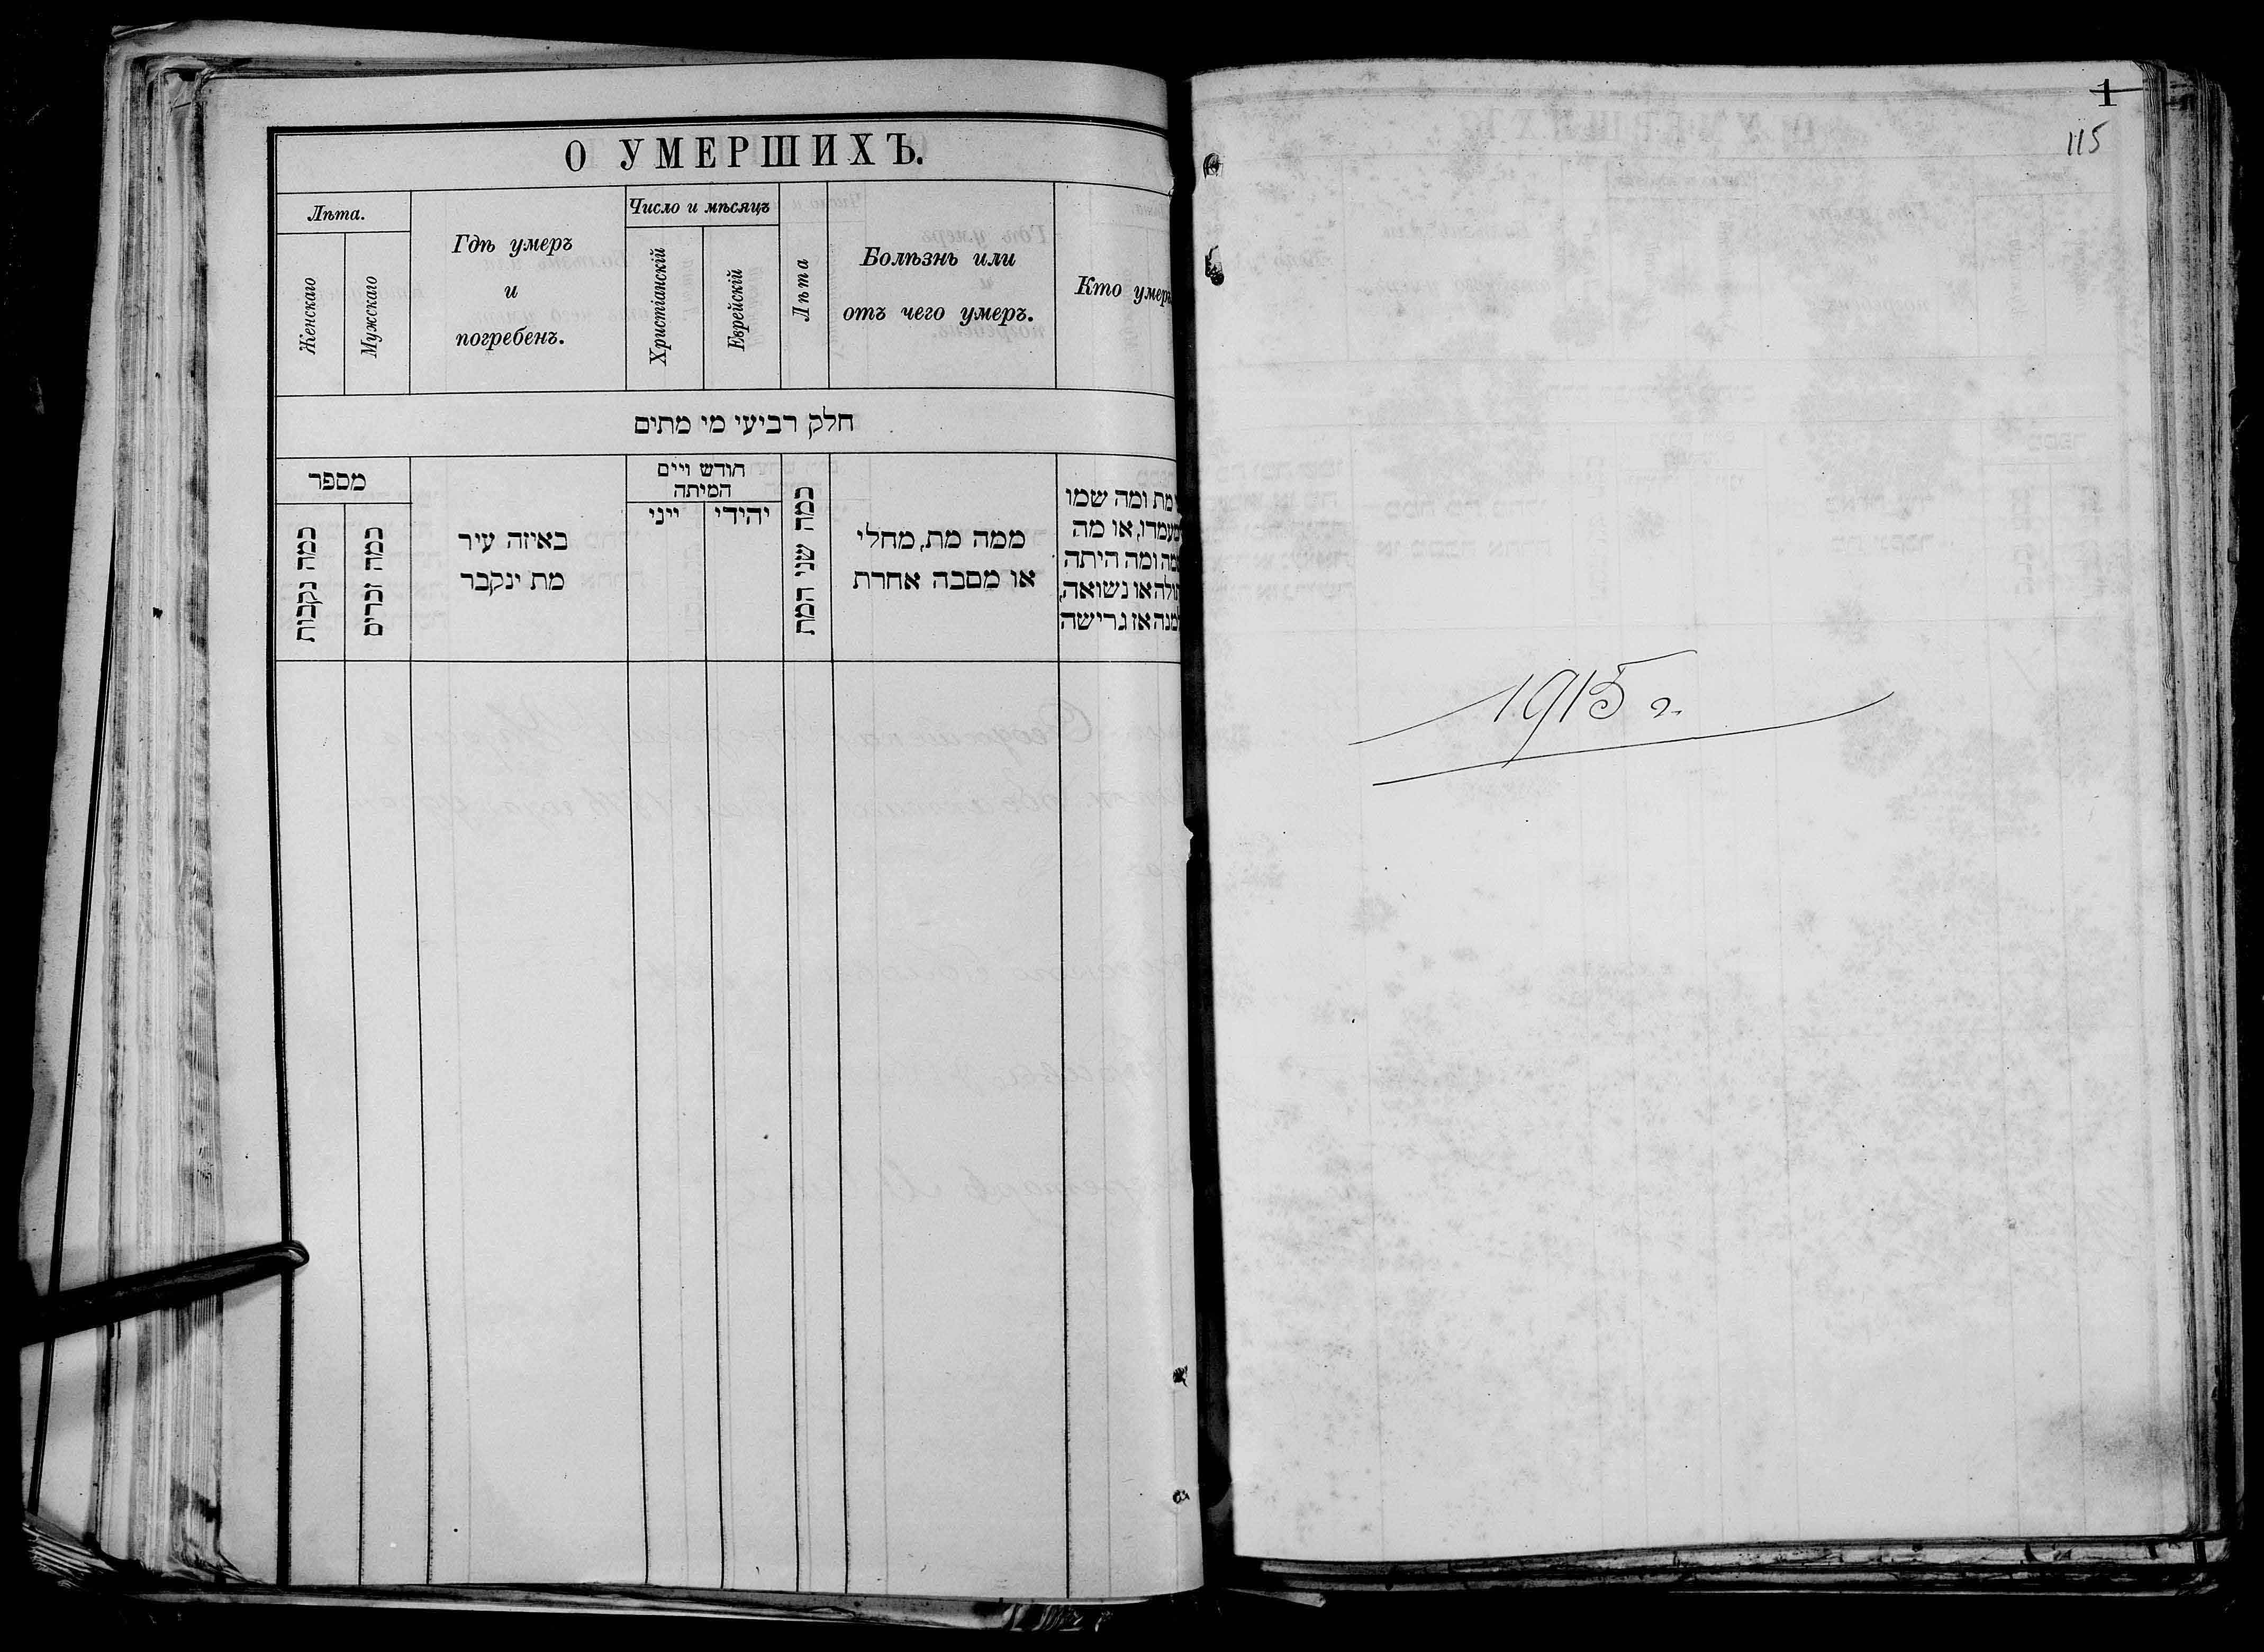 О УМЕРШИХЪ.
Лѣта.
Женскаго
Мужскаго
Гдѣ умеръ
и
погребенъ.
Число и мѣсяцъ
Христіанскій
Еврейскій
Лѣта
Болѣзнь или
отъ чего умеръ.
Кто умеръ
חלק רביעי מי מתים
מספר
כמה נקבות
כמה זכרים
באיזה עיר
מת ינקבר
חודש ויים
המיתה
ייני
יהודי
כמה שני המת
ממה מת, מחלי
או מסבה אחרת
מת ומה שמו
מעמדו, או מה
שמה ומה היתה
תולה או נשואה,
מנה אז גרישה
1
115
1915 г.